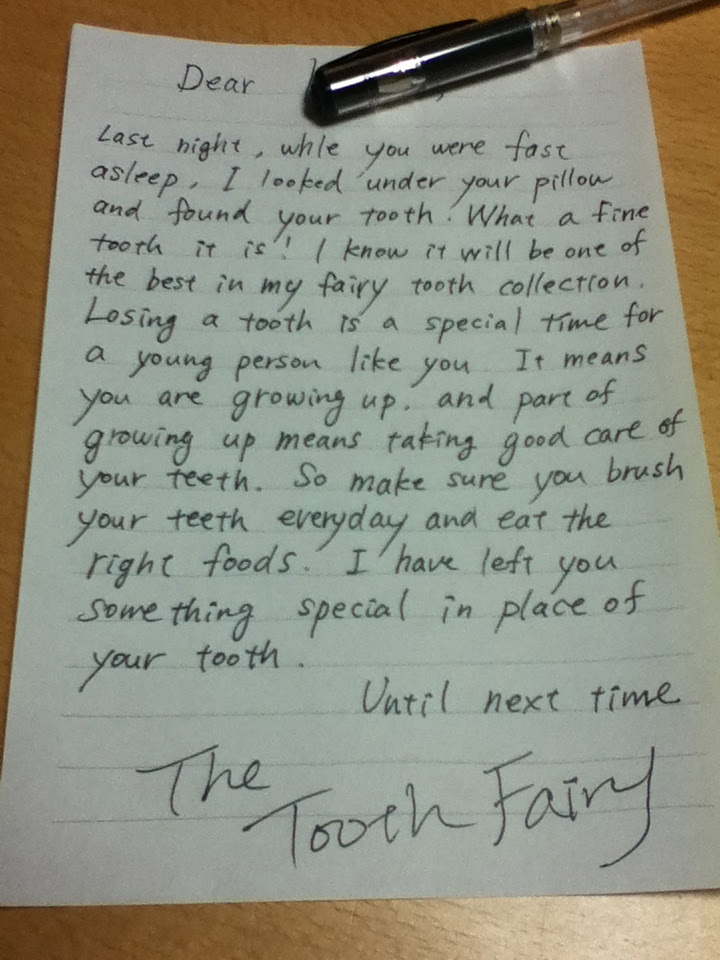 Dear
Last night, whle you were fast
asleep, I looked under your pillow
and found your tooth. What a fine
tooth it is! I know it will be one of
the best in my fairy tooth collection.
Losing a tooth is a special time for
a young person like you It means
you are growing up. and part of
growing up means taking good care of
your teeth. So make sure you brush
your teeth everyday and eat the
right foods. I have left you
something special in place of
your tooth.
Until next time
The
Tooth Fairy